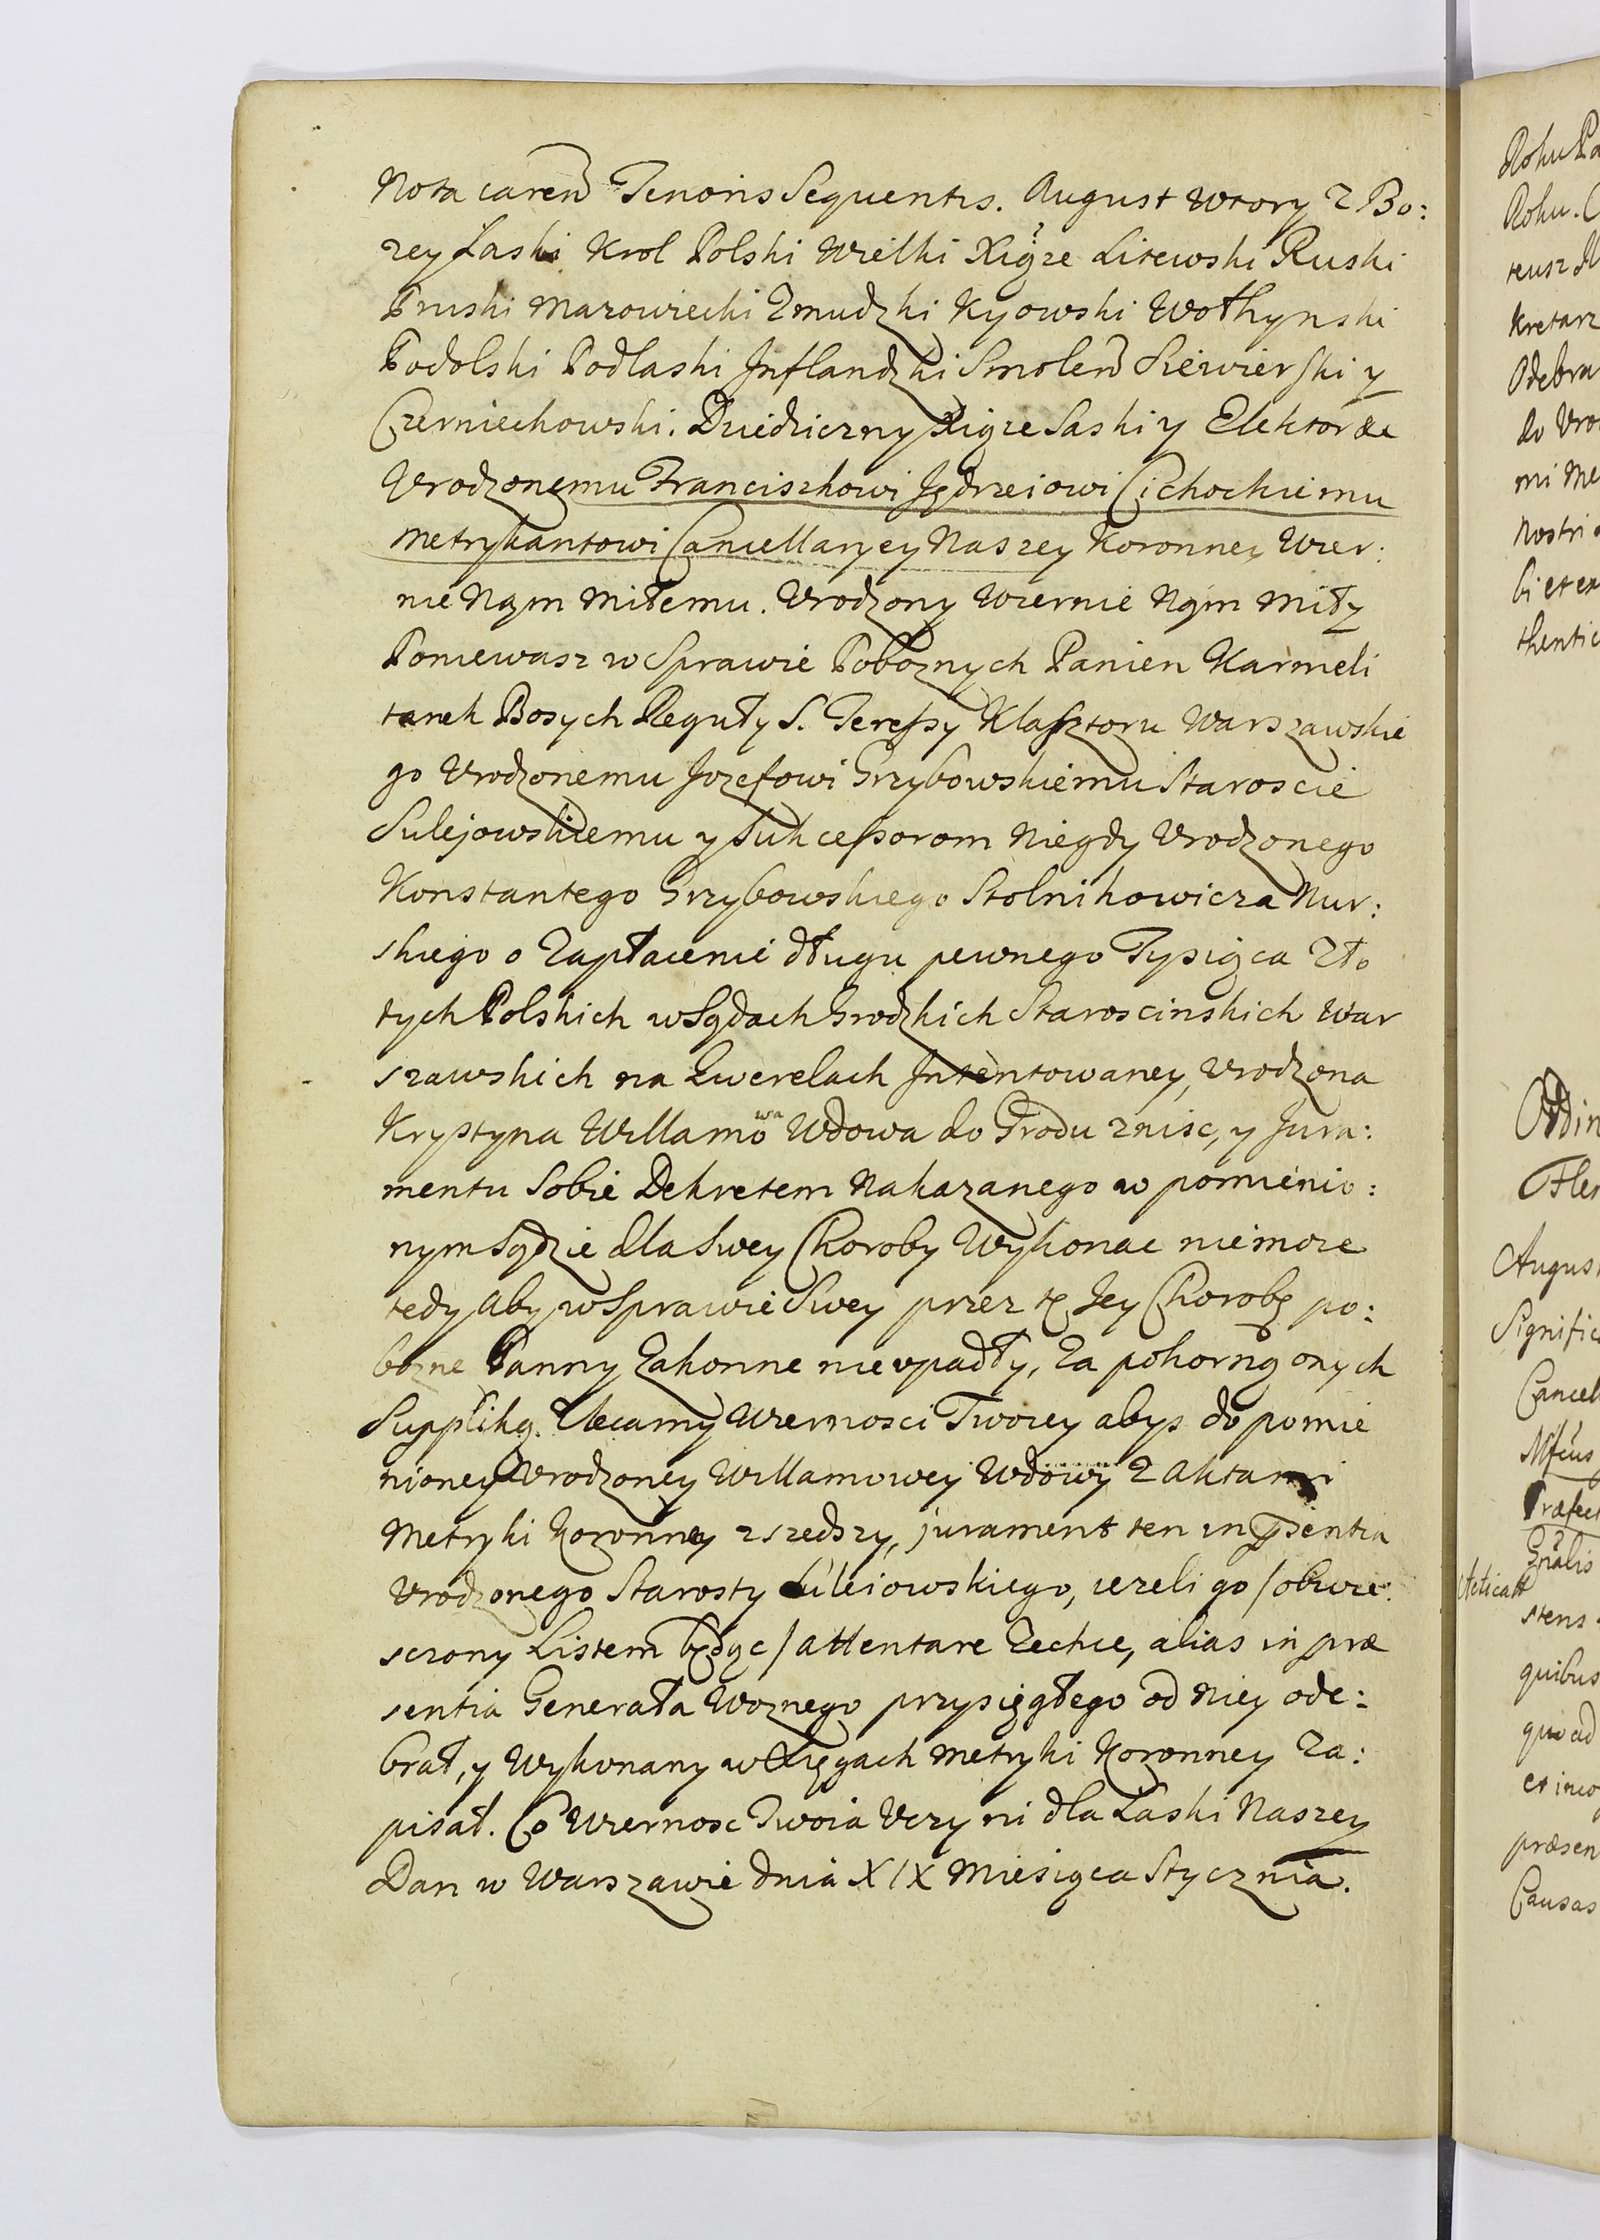 Nota caren Tenoris Sequentis. August Wtory Z Bo:
zey Łaski Krol Polski Wielki Xiąze Litewski Ruski
Pruski Mazowiecki Zmudzki Kyowski Wołhynski
Podolski Podlaski Inflandzki Smolen Siewierski y
Czerniechowski. Dziedziczny Xiąze Saski y Elektor &c
Vrodzonemu Franciszkowi Jędrzeiowi Cichockiemu
Metrykantowi Cancellaryey Naszey Koronney Wier:
nie Nąm miłemu. Vrodzony Wiernie Nąm Miły
Poniewasz w Sprawie Poboznych Panien Karmeli
tanek Bosych Reguły S. Teressy Klasztoru Warszawskie
go Vrodzonemu Jozefowi Grzybowskiemu Staroscie
Sulejowskiemu y Sukcessorom Niegdy Vrodzonego
Konstantego Grzybowskiego Stolnikowicza Nur:
skiego o Zapłacenie długu pewnego Tysiąca Zło
tych Polskich w Sądach Grodzkich Staroscinskich War
szawskich na Qwerelach Intentowaney, Vrodzona
Krystyna Willamowa Wdowa do Grodu znisc, y Jura:
mentu Sobie Dekretem Nakazanego w pomienio:
nym Sądzie dla Swey Choroby Wykonac niemoze
tedy Aby w Sprawie Swey przez tę Jey Chorobę po:
bozne Panny Zakonne nie vpadły, Za pokorną onych
Suppliką. Zlecamy Wiernosci Twoiey abys do pomie
nioney Vrodzoney Willamowey Wdowy Z Aktami
Metryki Koronney zszedszy, jurament ten in psentia
Vrodzonego Starosty Suleiowskiego, iezeli go /obwie
sczony Listem będąc/ attentare Zechce, alias in præ
sentia Generała Woznego przysięgłego od Niey ode:
brał, y Wykonany w Xięgach Metryki Koronney Za:
pisał. Co Wiernosc Twoia Vczyni dla Łaski Naszey
Dan w Warszawie dnia XIX Miesiąca Stycznia.
Rohu Pa
Rohu.
teusz
kretarz
Odebra
do Vro
mi Me
Nostri
bi et ex
thentic
Ordin
Fler
August
Signific
Cancel
Mfcus
Præfect
Gnalis
Acticatt
stens
quibus
quo ad
et inco
præsen
Causas